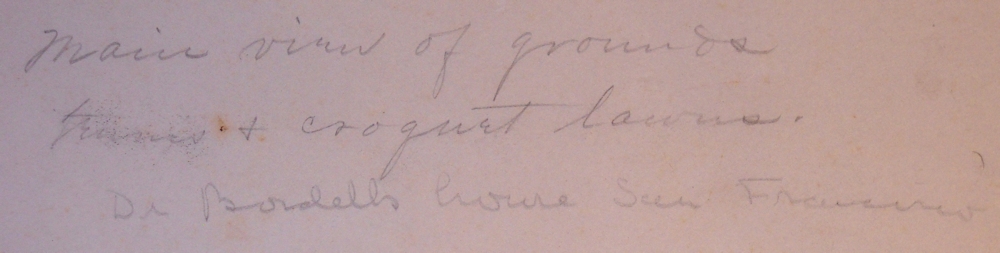 Main view of grounds
tennis & croquet lawns.
Dr Bordell's house San Francisco